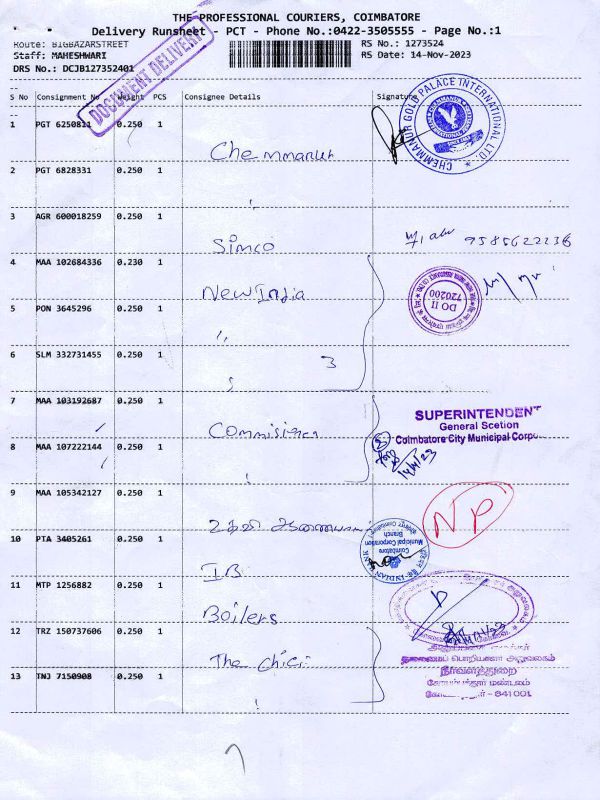 THE PROFESSIONAL COURIERS, COIMBATORE
Delivery Runsheet - PCT - Phone No.:0422-3505555 - Page No.:1
Route: BIGBAZARSTREET RS No.: 1273524
Staff: MAHESHWARI RS Date: 14-Nov-2023
DRS No.: DCJB127352401
DOCUMENT DELIVERY
S No Consignment No Weight PCS Consignee Details Signature
CHEMMANUR GOLD PALACE INTERNATIONAL LTD.
1 PGT 6250811 0.250 1
Chemmanur
2 PGT 6828331 0.250 1
"
3 AGR 600018259 0.250 1
Simco 9585622236
4 MAA 102684336 0.230 1
New India
DO II
720200
5 PON 3645296 0.250 1
"
6 SLM 332731455 0.250 1
3
"
7 MAA 103192687 0.250 1
Commisioner
SUPERINTENDENT
General Scetion
Coimbatore City Municipal Corpo
8 MAA 107222144 0.250 1
14/11/23
"
9 MAA 105342127 0.250 1
உதவி ஆணையர்
NP
10 PTA 3405261 0.250 1
INDIAN BANK
Coimbatore
Municipal Corporation
Branch
IB
11 MTP 1256882 0.250 1
Boilers
12 TRZ 150737606 0.250 1
The Chief
தலைமைப் பொறியாளர் அலுவலகம்
நீர்வளத்துறை
கோயம்புத்தூர் மண்டலம்
- 641 001
13 TNJ 7150908 0.250 1
"